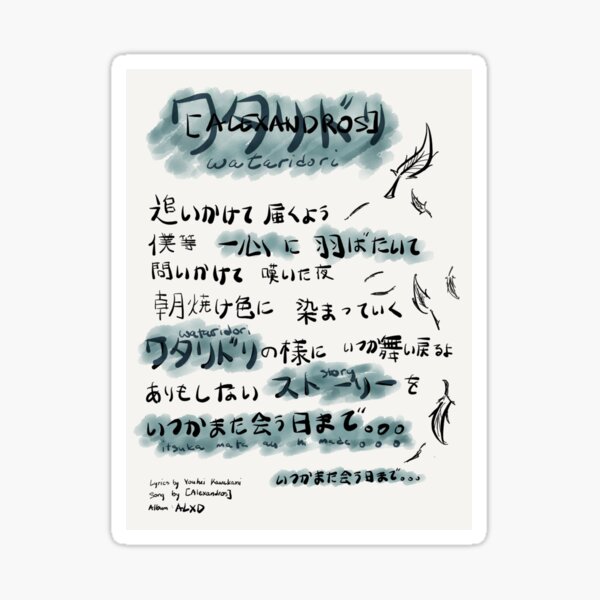 ワタリドリ
[ALEXANDROS]
wataridori
追いかけて 届くよう
僕等 一心に 羽ばたいて
問いかけて 嘆いた夜
朝焼け色に 染まっていく
wataridori
ワタリドリの様に いつか舞い戻るよ
story
ありもしない ストーリーを
いつかまた会う日まで。。。
itsuka mata au hi made 。。。
いつかまた会う日まで。。。
Lyrics by Youhei Kawakami
Song by [Alexandros]
Album : ALXD